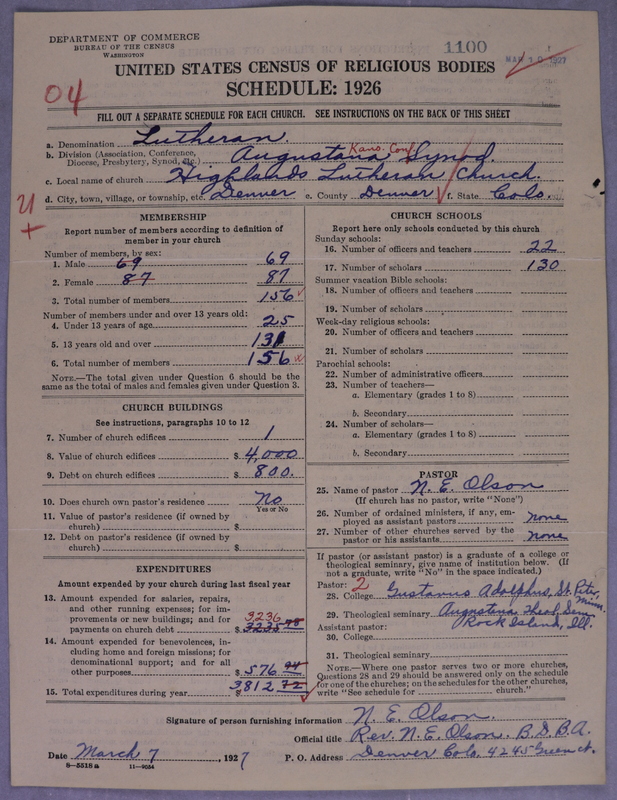 DEPARTMENT OF COMMERCE
BUREAU OF THE CENSUS
WASHINGTON
1100
MAR 10 1927
UNITED STATES CENSUS OF RELIGIOUS BODIES
SCHEDULE: 1926
04
FILL OUT A SEPARATE SCHEDULE FOR EACH CHURCH. SEE INSTRUCTIONS ON THE BACK OF THIS SHEET
a. Denomination Lutheran
b. Division (Association, Conference, Diocese, Presbytery, Synod, etc.) Augustana Synod. Kans. Conf.
c. Local name of church Highlands Lutheran Church.
d. City, town, village, or township, etc. Denver e. County Denver f. State Colo.
MEMBERSHIP
Report number of members according to definition of
member in your church
Number of members, by sex:
1. Male 69 69
2. Female 87 87
3. Total number of members 156
Number of members under and over 13 years old:
4. Under 13 years of age 25
5. 13 years old and over 131
6. Total number of members 156
NOTE.—The total given under Question 6 should be
same as the total of males and females given under Question 3.
CHURCH BUILDINGS
See instructions, paragraphs 10 to 12
7. Number of church edifices 1
8. Value of church edifices $ 4,000
9. Debt on church edifices $ 800.
10. Does church own pastor's residence No
Yes or No
11. Value of pastor's residence (if owned by
church) $
12. Debt on pastor's residence (if owned by
church) $
EXPENDITURES
Amount expended by your church during last fiscal year
13. Amount expended for salaries, repairs,
and other running expenses; for im-
provements or new buildings; and for 3236
payments on church debt $ 3235 78
14. Amount expended for benevolences, in-
cluding home and foreign missions; for
denominational support; and for all
other purposes $ 576 94
15. Total expenditures during year $ 3812 72
CHURCH SCHOOLS
Report here only schools conducted by this church
Sunday schools:
16. Number of officers and teachers 22
17. Number of scholars 130
Summer vacation Bible schools:
18. Number of officers and teachers
19. Number of scholars
Week-day religious schools:
20. Number of officers and teachers
21. Number of scholars
Parochial schools:
22. Number of administrative officers
23. Number of teachers—
a. Elementary (grades 1 to 8)
b. Secondary
24. Number of scholars—
a. Elementary (grades 1 to 8)
b. Secondary
PASTOR
25. Name of pastor N. E. Olson
(If church has no pastor, write "None")
26. Number of ordained ministers, if any, em-
ployed as assistant pastors none
27. Number of other churches served by the
pastor or his assistants none
If pastor (or assistant pastor) is a graduate of a college or
theological seminary, give name of institution below. (If
not a graduate, write "No" in the space indicated.)
Pastor: 2
28. College Gustavus Adolphus, St. Peter, Minn.
29. Theological seminary Augustana Theol. Sem.
Assistant pastor: Rock Island, Ill.
30. College
31. Theological seminary
NOTE.—Where one pastor serves two or more churches,
Questions 28 and 29 should be answered only on the schedule
for one of the churches; on the schedules for the other churches,
write "See schedule for church."
Signature of person furnishing information N. E. Olson.
Official title Rev. N. E. Olson. B.D. B.A.
Date March 7, 1927 P. O. Address Denver Colo. 4245 Green ct.
8—5518 a 11—9554